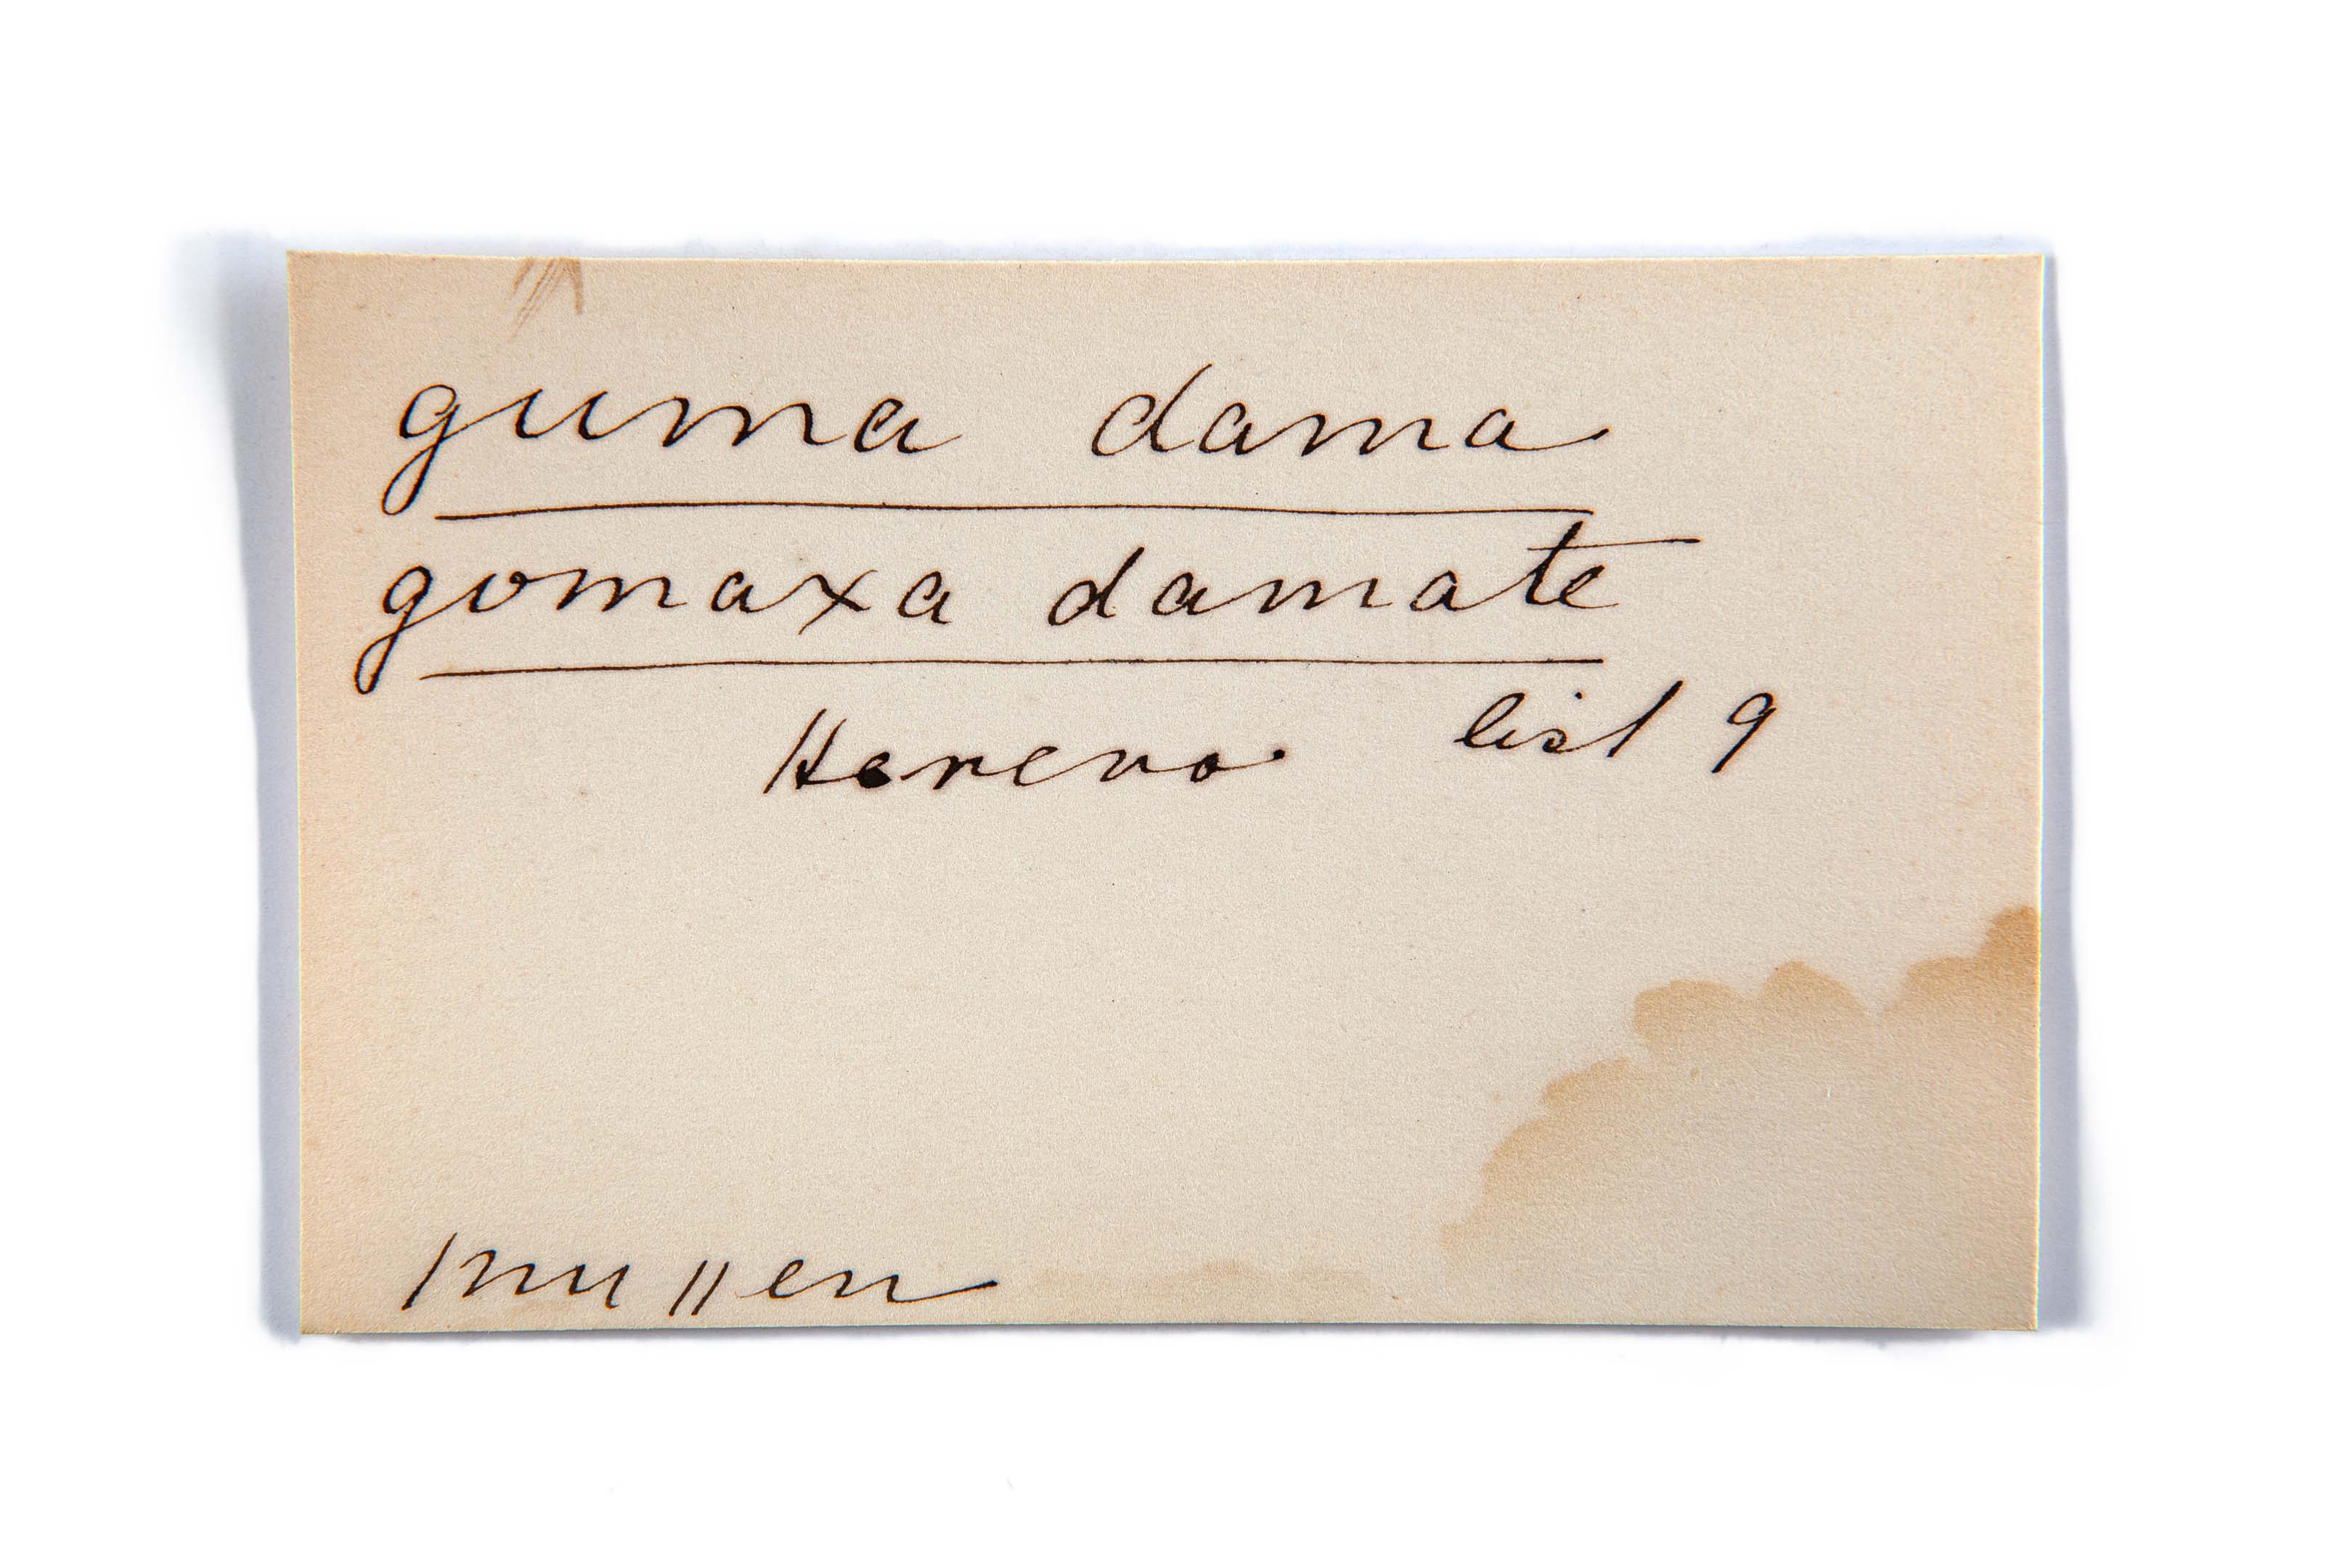 guma dama
gomaxa damate
Herero list 9